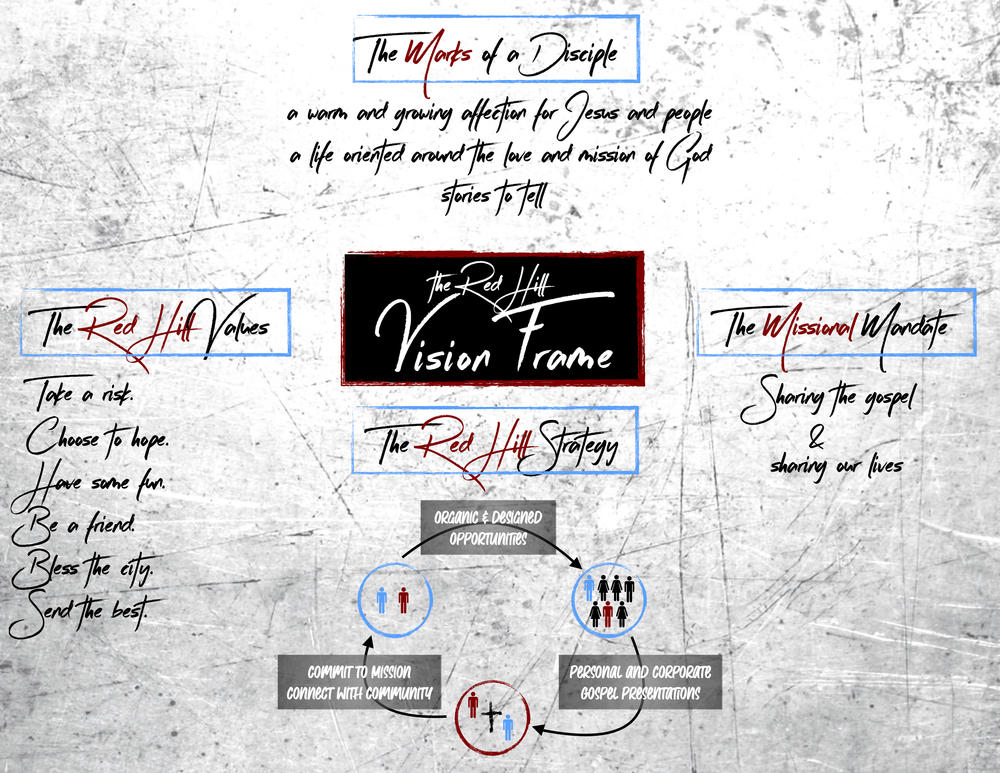 The Marks of a Disciple
a warm and growing affection for Jesus and people
a life oriented around the love and mission of God
stories to tell
the Red Hill
Vision Frame
The Red Hill Values
Take a risk.
Choose to hope.
Have some fun.
Be a friend.
Bless the city.
Send the best.
The Missional Mandate
Sharing the gospel
&
sharing our lives
The Red Hill Strategy
ORGANIC & DESIGNED
OPPORTUNITIES
PERSONAL AND CORPORATE
GOSPEL PRESENTATIONS
COMMIT TO MISSION
CONNECT WITH COMMUNITY